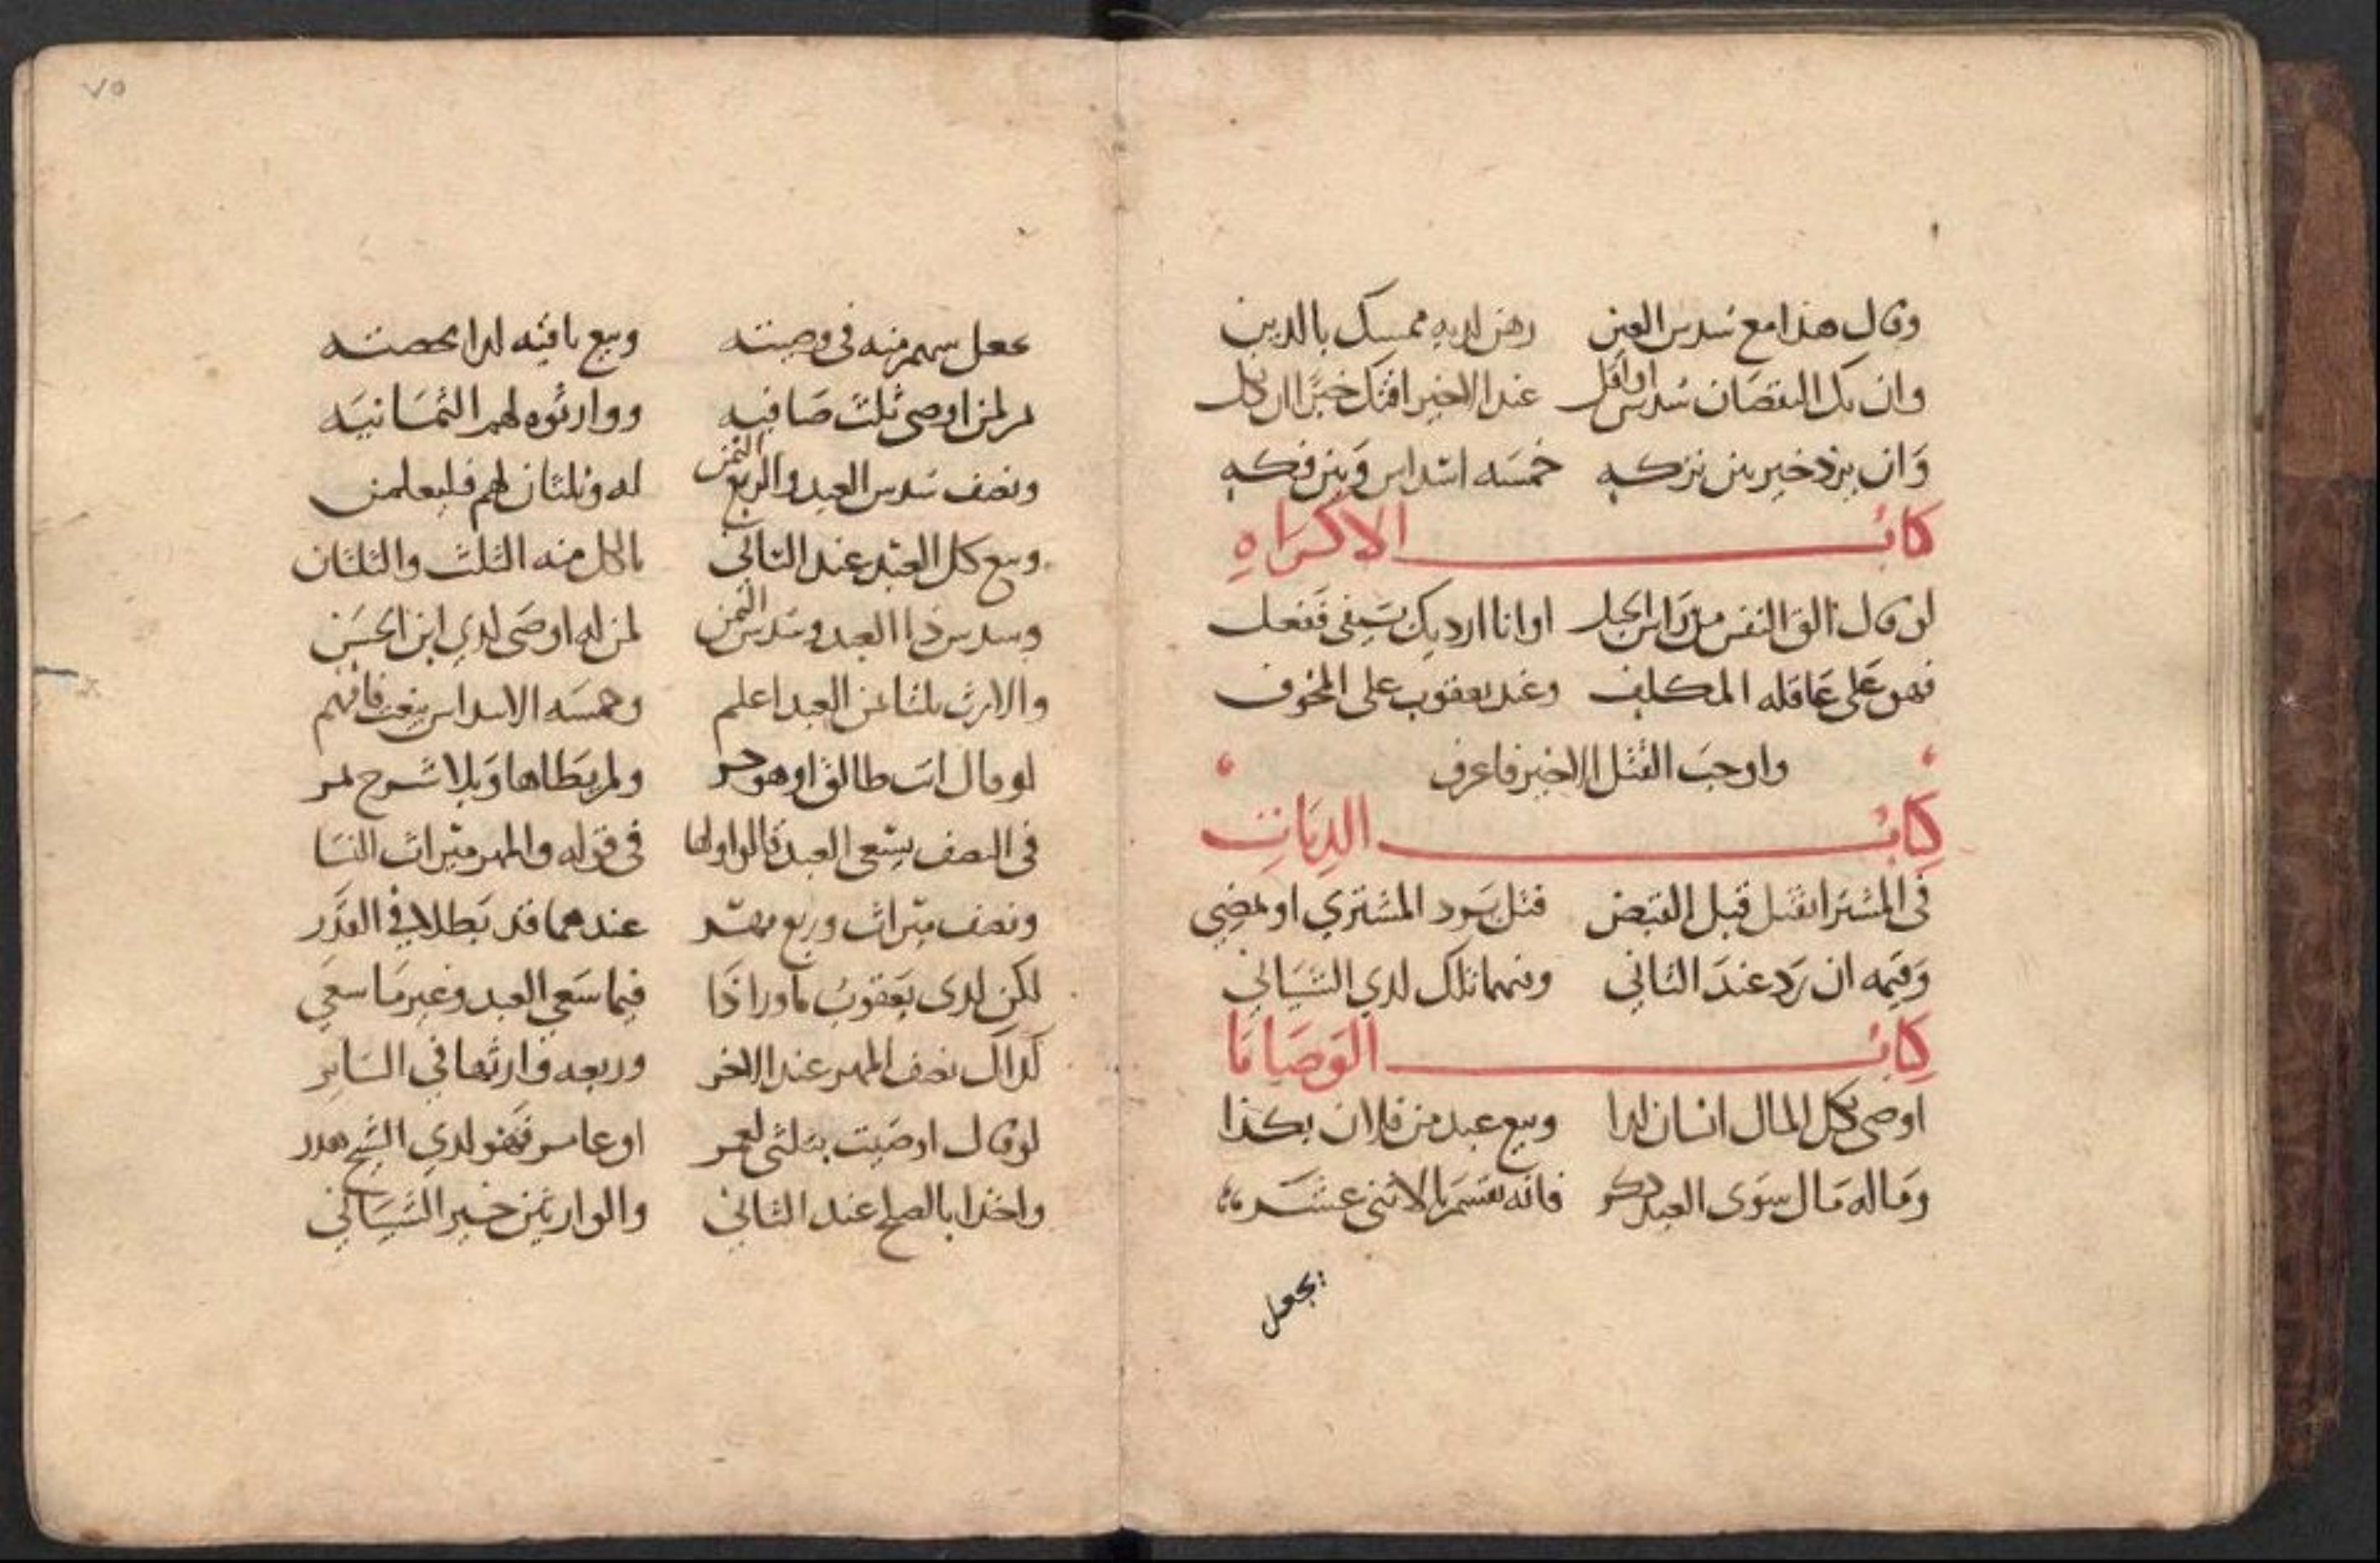 وقال هذا مع سدس العين رهن لديه ممسك بالدين
وان يك النقصان سدس او اقل عند الاخير افتك خبرا ان كل
وان يزد خير بين تركه خمسه اسداس وبين فكه
كتاب الاكراه
لو قال الق النفس من راس الجبل او انا ارديك بسيفى ففعل
فهو على عاقله المكلف وعند يعقوب على المخوف
واوجب القتل الاخير فاعرف
كتاب الديات
فى المشترا يقتل قبل القبض قتل يرد المشتري او يمضي
وقيمه ان رد عند الثاني وفيهما تلك لدي الشيباني
كتاب الوصايا
اوصى بكل المال انسان لذا وبيع عبد من فلان بكذا
وماله مال سوى العبد ذكر فانه يقسم بالاثنى عشر
يجعل
٧٥
يجعل سهم منه فى وصيته وبيع باقيه لذا بحصته
ثم لمن اوصى ثلث صافيه ووارثوه لهم الثمانيه
ونصف سدس العبد والربع الثمن له وثلثان لهم فليعلمن
وبيع كل العبد عند الثاني بالكل منه الثلث والثلثان
وسدس ذا العبد وسدس الثمن لمن له اوصى لدي ابن الحسن
والارث ثلثا من العبد اعلم وخمسه الاسداس بيعت فافهم
لو قال انت طالق او هو حر ولم يطاها وبلا شرح
فى النصف يسعى العبد قالوا ولها فى قوله والمهر ميراث النسا
ونصف ميراث وربع مهر عندهما قد بطلا في القدر
لكن لدى يعقوب ما ورا ذا فيما سعي العبد وغير ما سعي
كذاك نصف المهر عند الاخر وربعه وارثها في الساير
لو قال اوصيت بثلثى لعمر او عامر فهو لدي الشيخ هدر
واخذا بالصلح عند الثاني والوارثين خير الشيباني